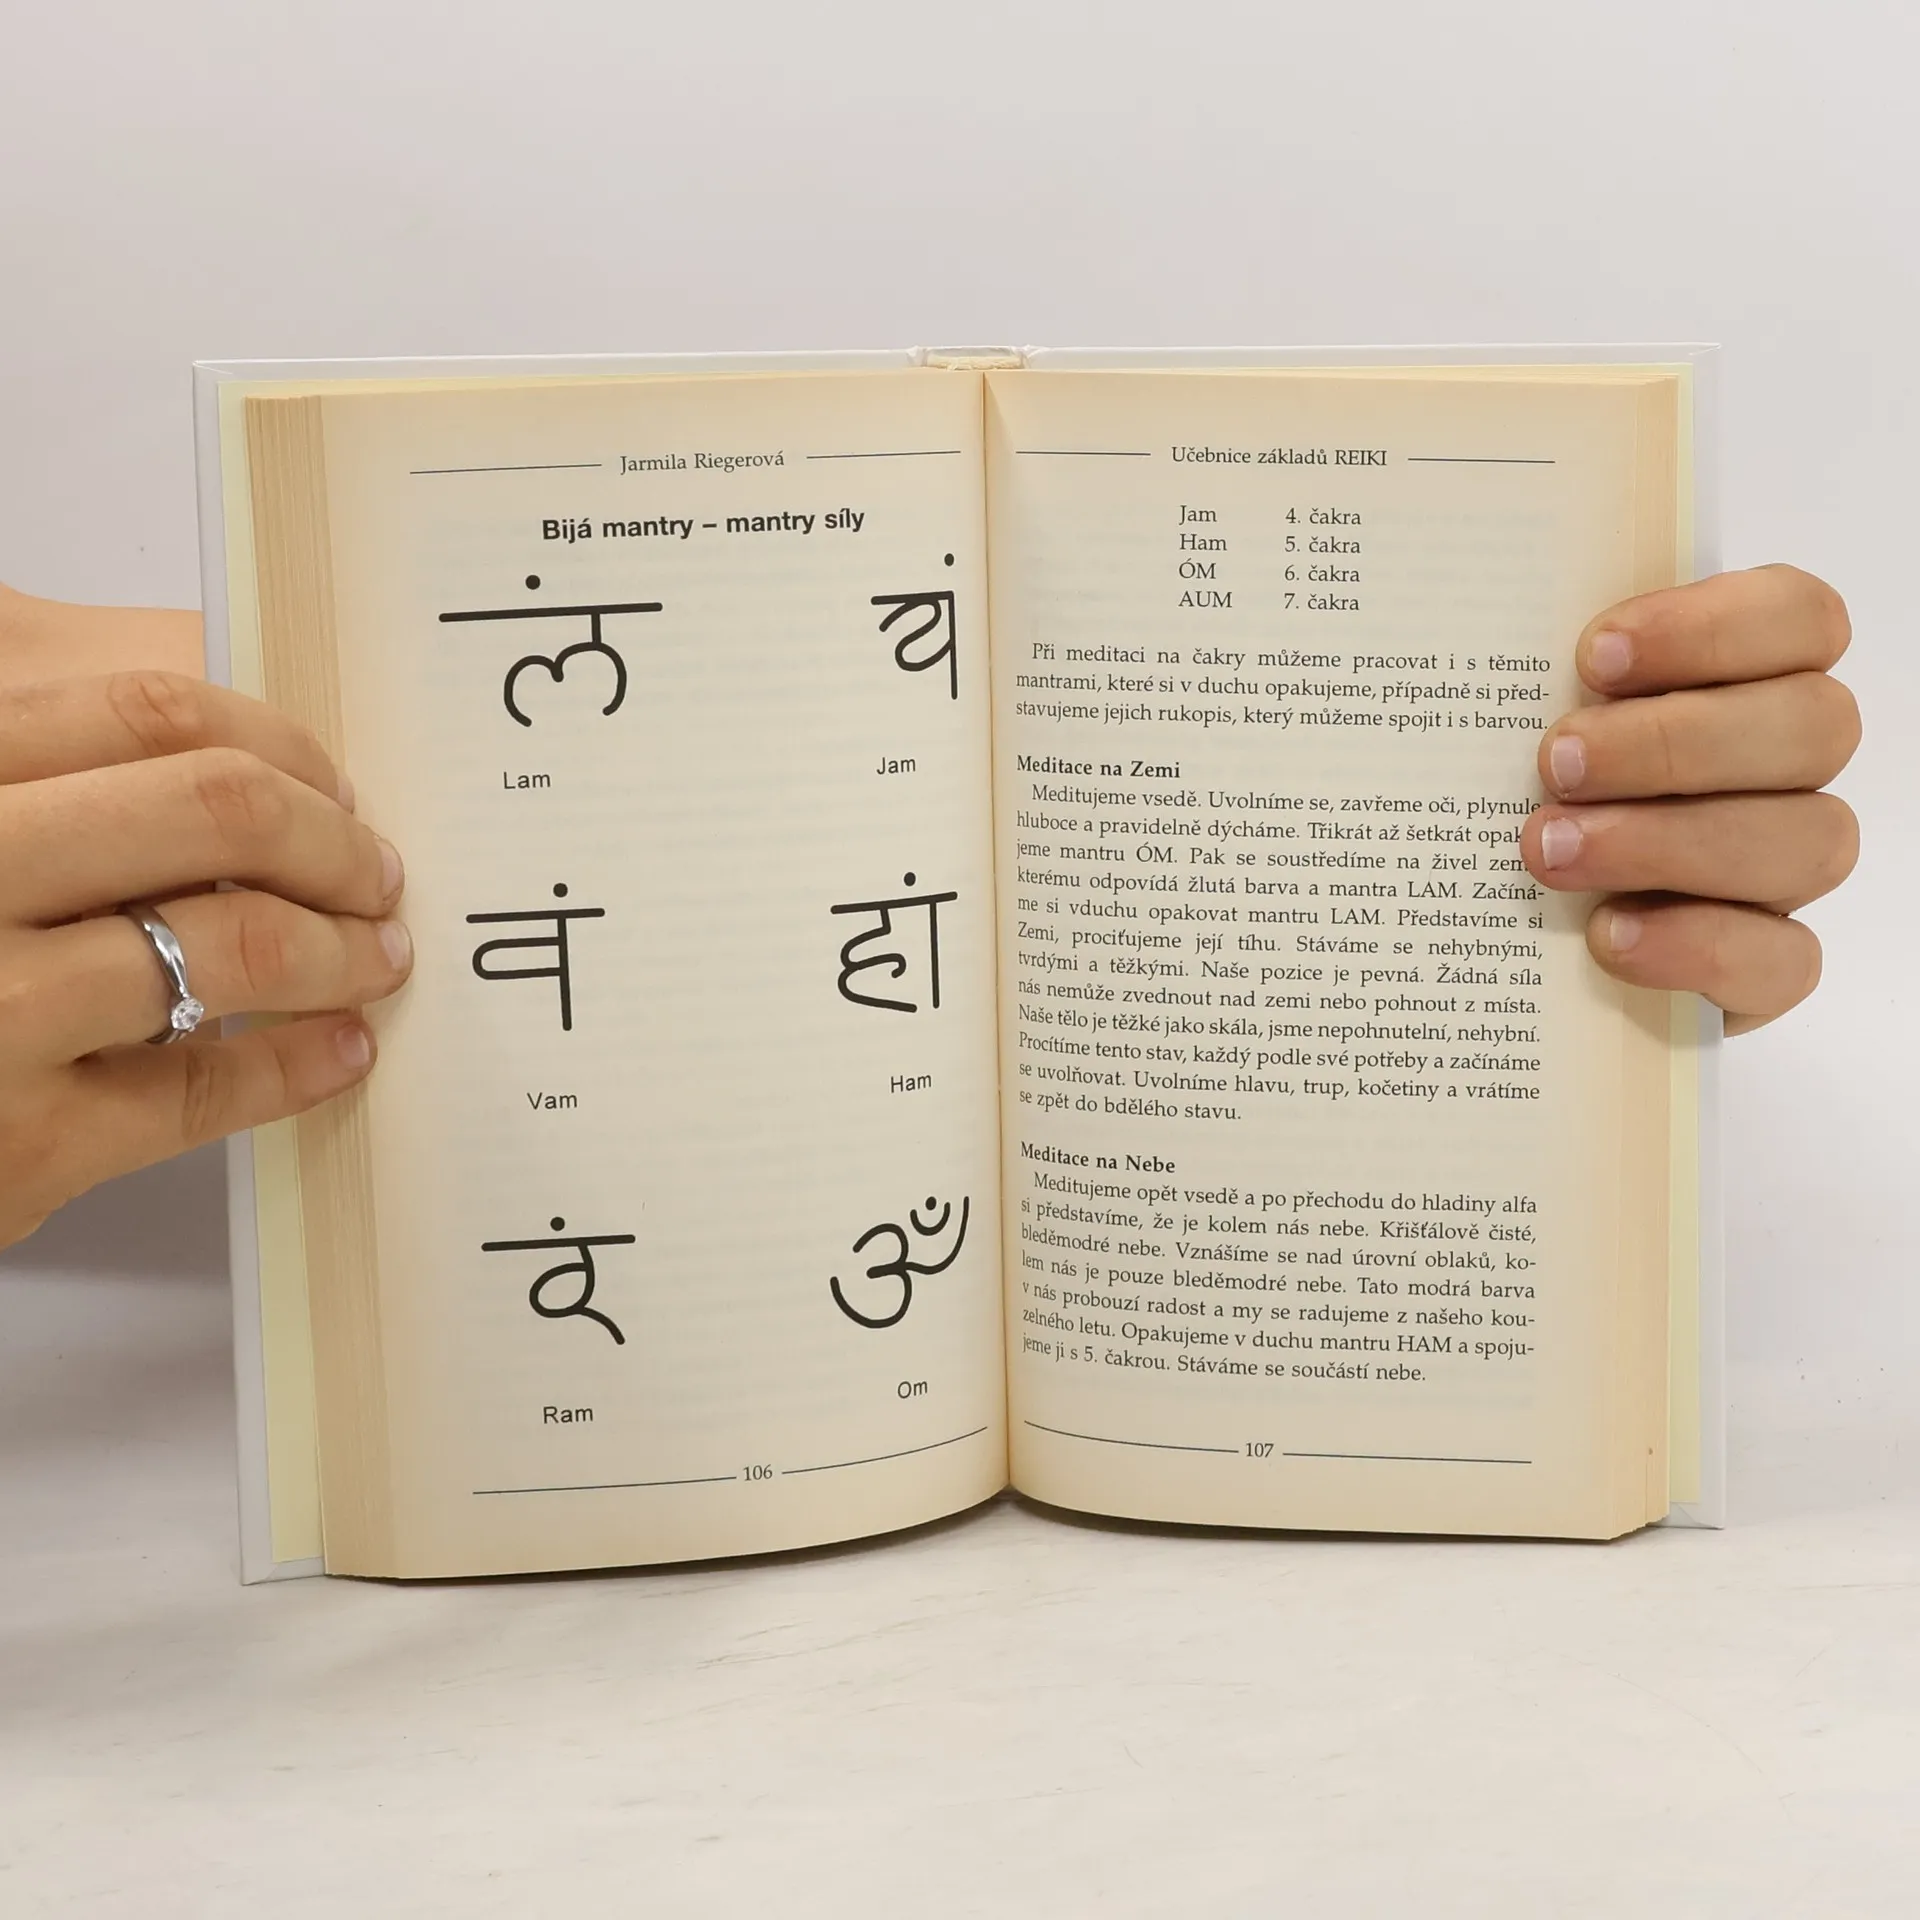 Jarmila Riegerová
Bijá mantry – mantry síly
लं
यं
Lam
Jam
वं
हां
Vam
Ham
रं
ॐ
Ram
Om
106
Učebnice základů REIKI
Jam 4. čakra
Ham 5. čakra
ÓM 6. čakra
AUM 7. čakra
Při meditaci na čakry můžeme pracovat i s těmito
mantrami, které si v duchu opakujeme, případně si před-
stavujeme jejich rukopis, který můžeme spojit i s barvou.
Meditace na Zemi
Meditujeme vsedě. Uvolníme se, zavřeme oči, plynule
hluboce a pravidelně dýcháme. Třikrát až šetkrát opak
jeme mantru ÓM. Pak se soustředíme na živel zem
kterému odpovídá žlutá barva a mantra LAM. Začíná-
me si vduchu opakovat mantru LAM. Představíme si
Zemi, prociťujeme její tíhu. Stáváme se nehybnými,
tvrdými a těžkými. Naše pozice je pevná. Žádná síla
nás nemůže zvednout nad zemi nebo pohnout z místa.
Naše tělo je těžké jako skála, jsme nepohnutelní, nehybní.
Procítíme tento stav, každý podle své potřeby a začínáme
se uvolňovat. Uvolníme hlavu, trup, kočetiny a vrátíme
se zpět do bdělého stavu.
Meditace na Nebe
Meditujeme opět vsedě a po přechodu do hladiny alfa
si představíme, že je kolem nás nebe. Křišťálově čisté,
bleděmodré nebe. Vznášíme se nad úrovní oblaků, ko-
lem nás je pouze bleděmodré nebe. Tato modrá barva
v nás probouzí radost a my se radujeme z našeho kou-
zelného letu. Opakujeme v duchu mantru HAM a spoju-
jeme ji s 5. čakrou. Stáváme se součástí nebe.
107